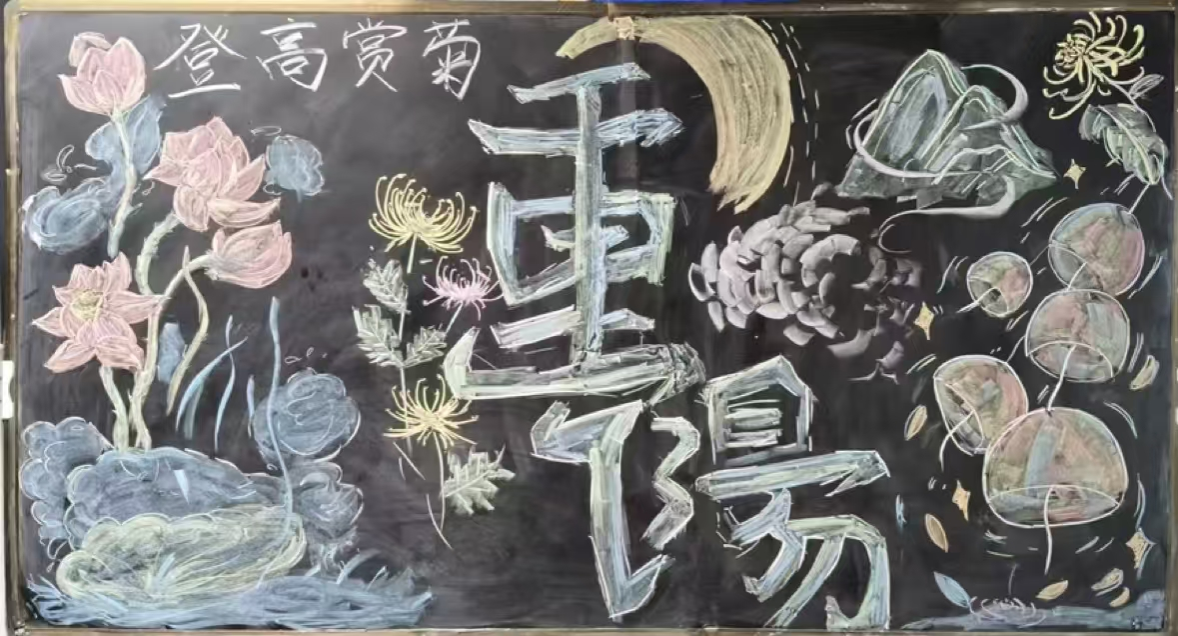 登高赏菊
重
陽